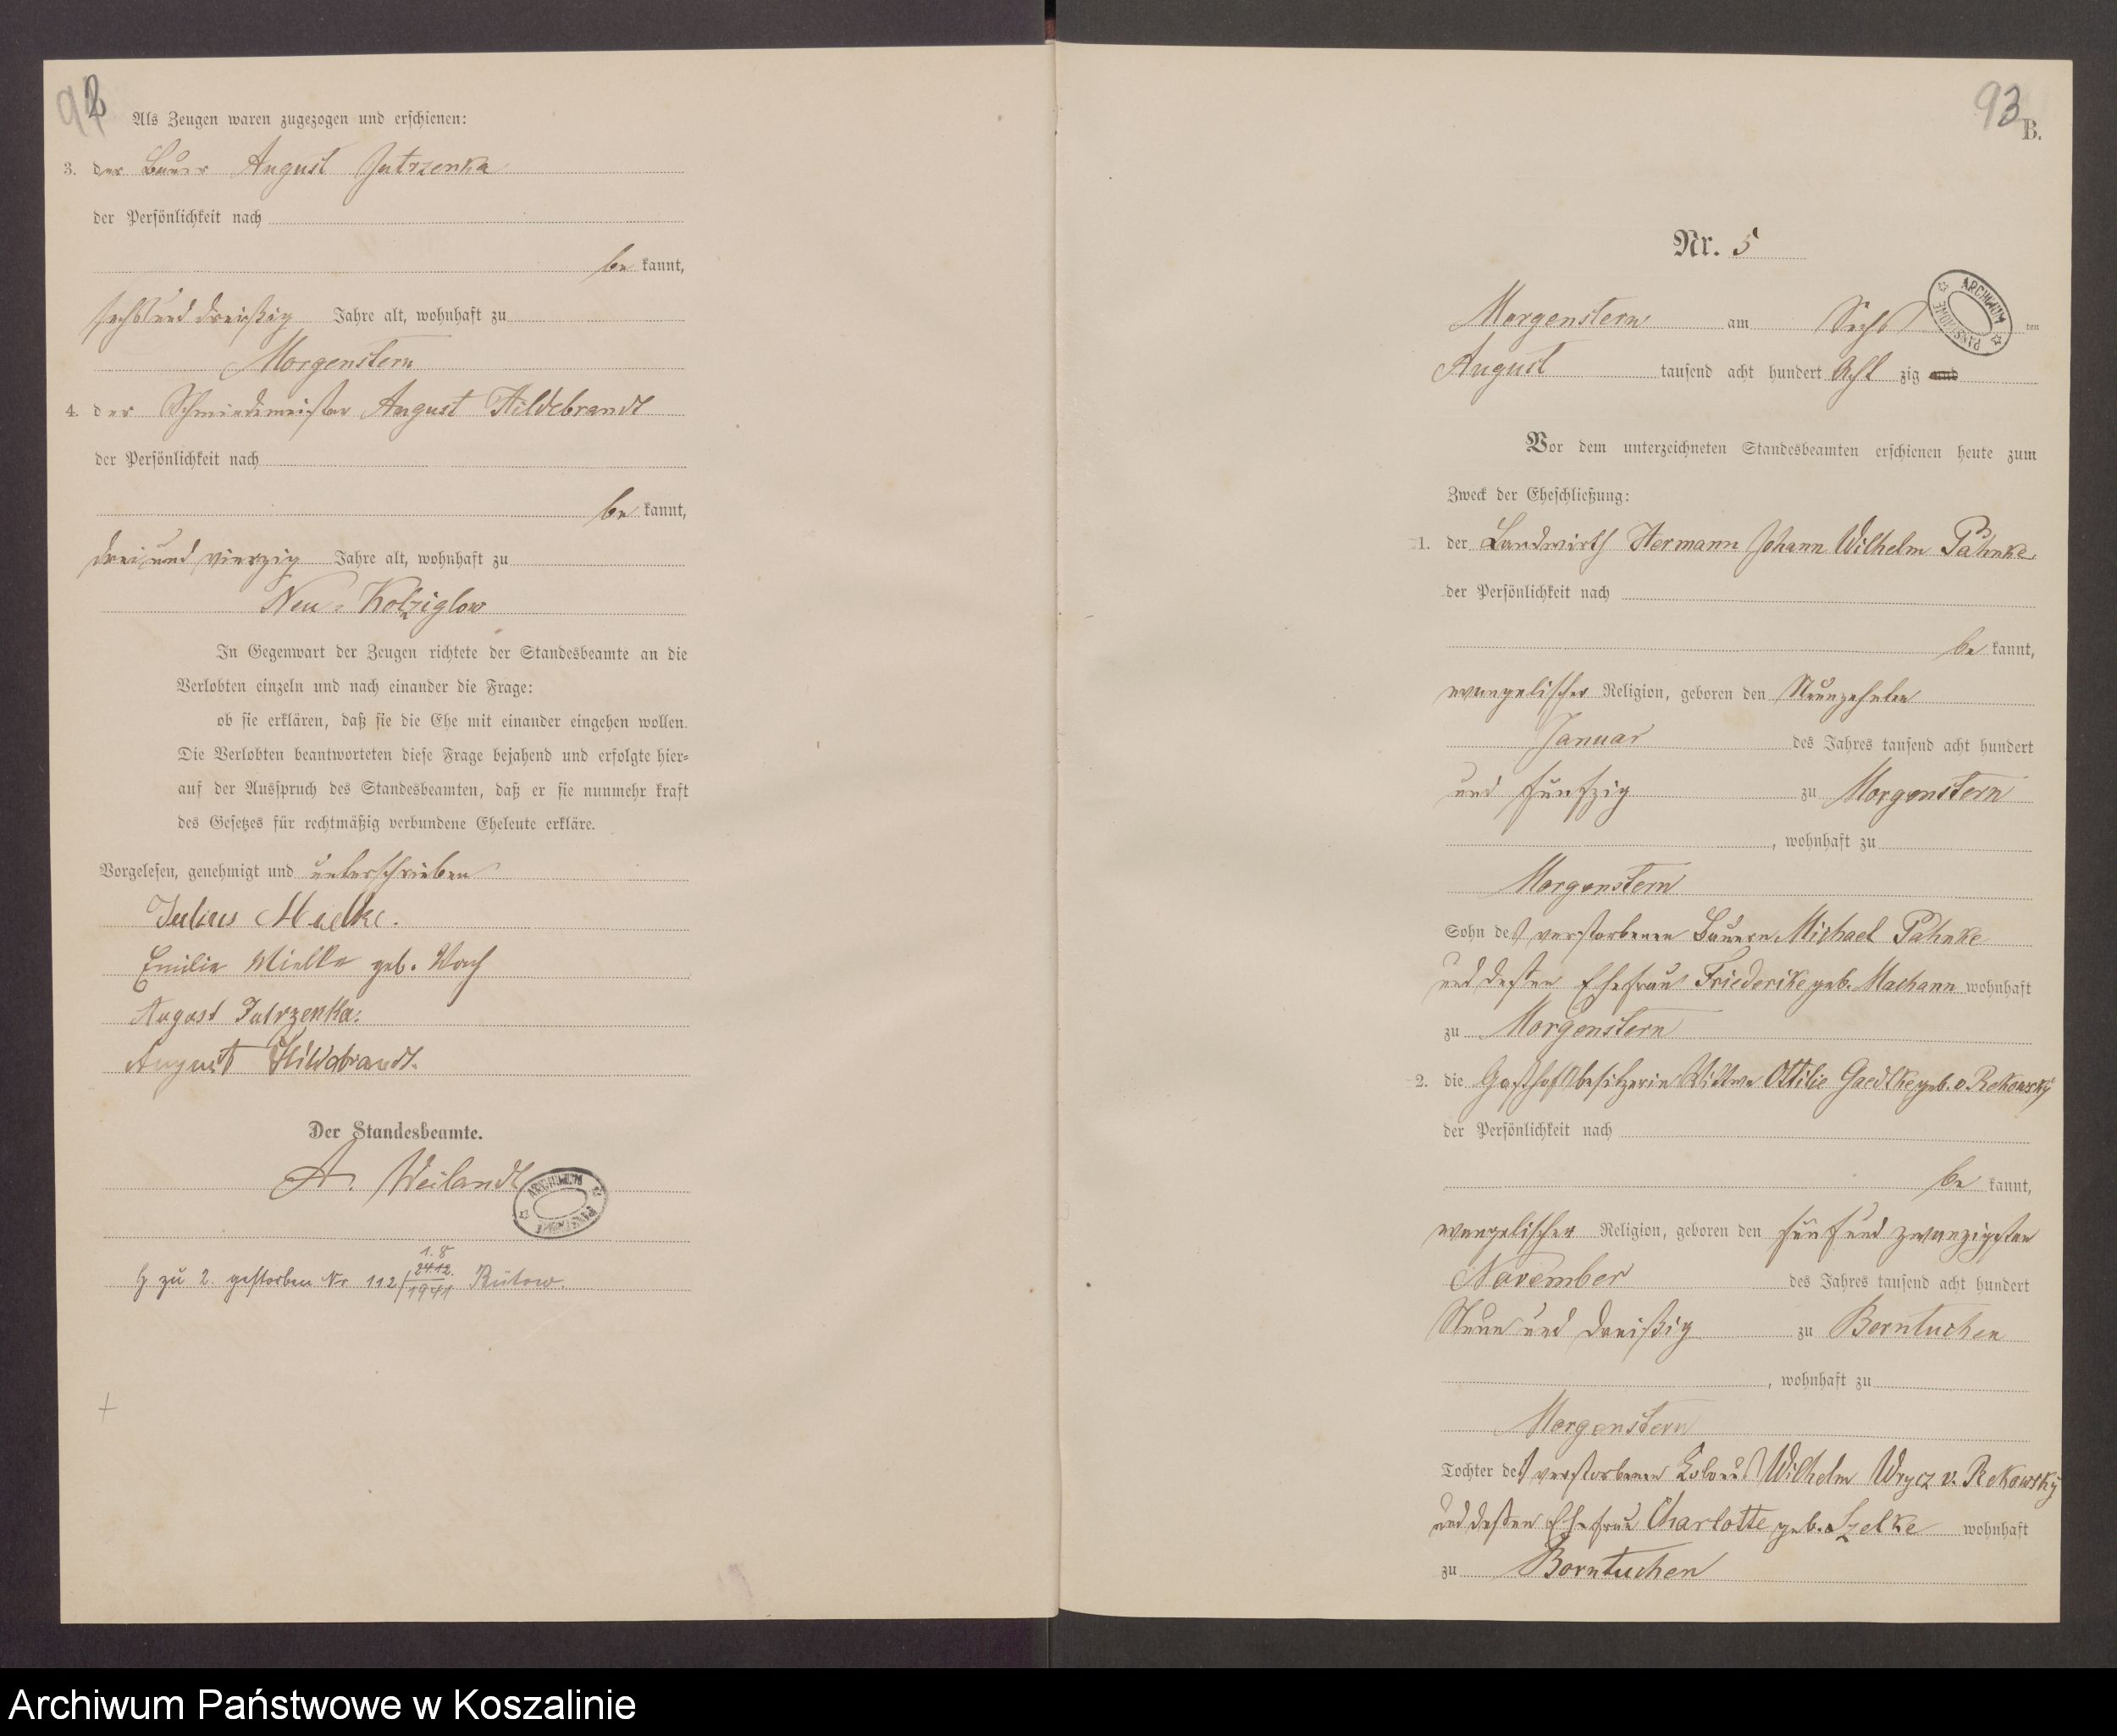 92
Als Zeugen waren zugezogen und erschienen:
3. der Bauer August Jutrzenka
der Persönlichkeit nach
be kannt,
sechs und dreißig Jahre alt, wohnhaft zu
Morgenstern
4. der Schmiedemeister August Hildebrandt
der Persönlichkeit nach
be kannt,
drei und vierzig Jahre alt, wohnhaft zu
Neu-Kolziglow
In Gegenwart der Zeugen richtete der Standesbeamte an die
Verlobten einzeln und nach einander die Frage:
ob sie erklären, daß sie die Ehe mit einander eingehen wollen.
Die Verlobten beantworteten diese Frage bejahend und erfolgte hier-
auf der Ausspruch des Standesbeamten, daß er sie nunmehr kraft
des Gesetzes für rechtmäßig verbundene Eheleute erkläre.
Vorgelesen, genehmigt und unterschrieben
Julius Mielke.
Emilie Mielke geb. Noch
August Jutrzenka.
August Hildebrandt.
Der Standesbeamte.
A. Weilandt
ARCHIWUM PAŃSTWOWE
1.8
zu 2. gestorben Nr 112/24.12. 1941 Bütow.
93
B.
Nr. 5
ARCHIWUM PAŃSTWOWE
Morgenstern am Sechs ten
August tausend acht hundert Acht zig und
Vor dem unterzeichneten Standesbeamten erschienen heute zum
Zweck der Eheschließung:
1. der Landwirth Hermann Johann Wilhelm Pahnke
der Persönlichkeit nach
be kannt,
evangelischer Religion, geboren den Neunzehnten
Januar des Jahres tausend acht hundert
und fünfzig zu Morgenstern
, wohnhaft zu
Morgenstern
Sohn des verstorbenen Bauern Michael Pahnke
und dessen Ehefrau Friederike geb. Machann wohnhaft
zu Morgenstern
2. die Gasthofbesitzerin Wittwe Ottilie Gaedtke geb. v. Rekowsky
der Persönlichkeit nach
be kannt,
evangelischer Religion, geboren den fünf und zwanzigsten
November des Jahres tausend acht hundert
Neun und dreißig zu Borntuchen
, wohnhaft zu
Morgenstern
Tochter des verstorbenen Wilhelm Wrycz v. Rekowsky
und dessen Ehefrau Charlotte geb. Szelke wohnhaft
zu Borntuchen
Archiwum Państwowe w Koszalinie